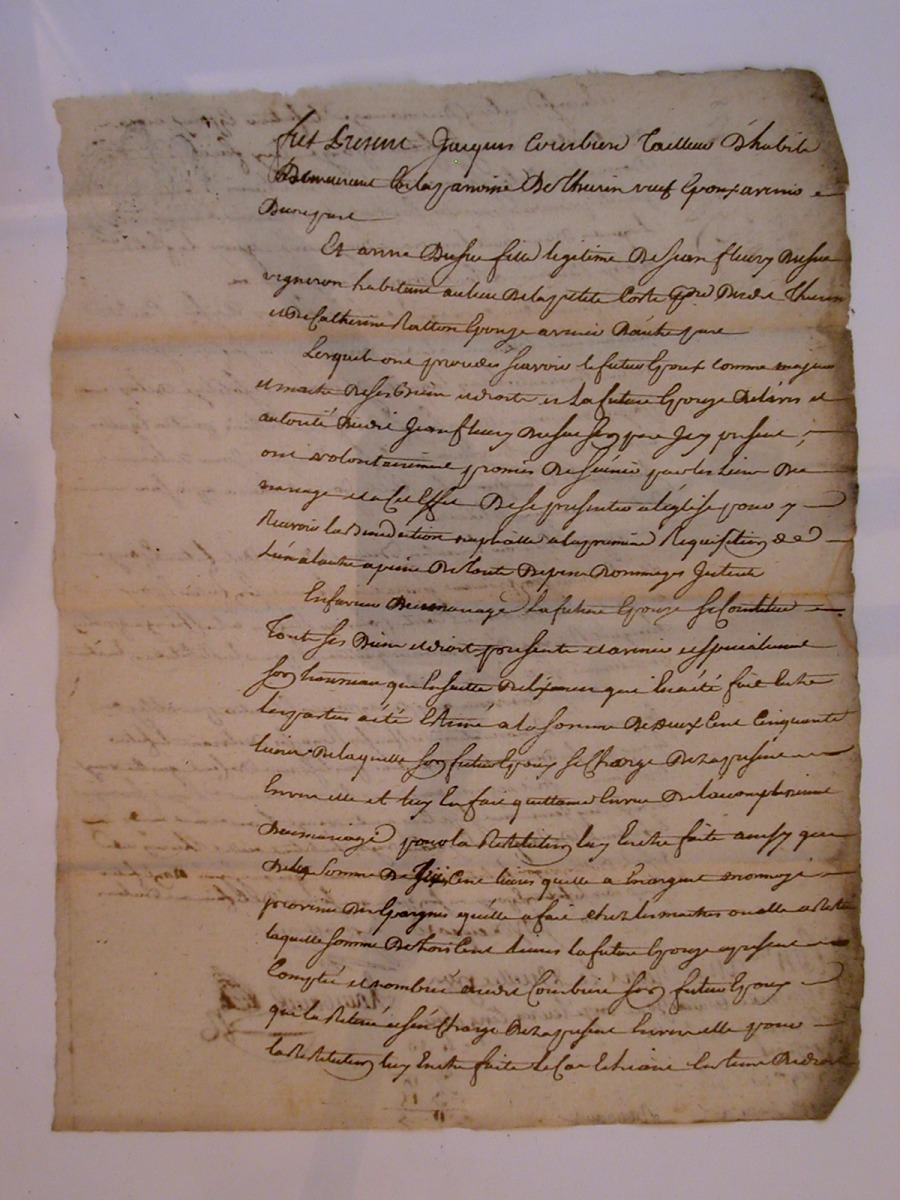 fut present Jacques Courbiere Tailleur D'habits
Demeurant en la paroisse De Thurin veuf Epoux avenir
D'une part
Et anne Dussuc fille legitime De Jean fleury Dussuc
vigneron habitant au lieu De la petite Coste Dudit Thurin
et De Catherine Ratton Epouze avenir D'autre part
Lesquels ont procedés scavoir le futur Epoux comme majeur
et maitre De ses Biens et droits et La future Epouze De l'avis et
autorité Dudit Jean fleury Dussuc son pere Icy present
ont volontairement promis De s'unir par les Liens Du
mariage et a cet Effet De se presenter a l'église pour y
Recevoir la Benediction nuptialle a la premiere Requisition De
L'un a l'autre a peine De toute Depens Dommages Interets
En faveur Du mariage La future Epouze se Constitue
Touts ses Biens et droits presents et avenir et specialement
son trousseau que En suitte De l'Examen qui En a été fait Entre
les parties a été Estimé a la somme De Deux Cent Cinquante
Livres De laquelle son futur Epoux se Charge Deza present
Envers elle et luy En fait quittance En vue De l'accomplissement
Du mariage pour la Restitution luy En etre faite aussy que
De la somme De Trois Cent livres quelle a En argent monnoyé
provenu Des Epargnes quelle a fait chez les maitres ou elle a Resté
laquelle somme De trois Cent Livres la future Epouze a presentement
Comptée et nombrée audit Courbiere son futur Epoux
qui la Retiré et s'en Charge Deza present Envers elle pour
la Restitution luy En etre faite le Cas Echeant En Terme De droit